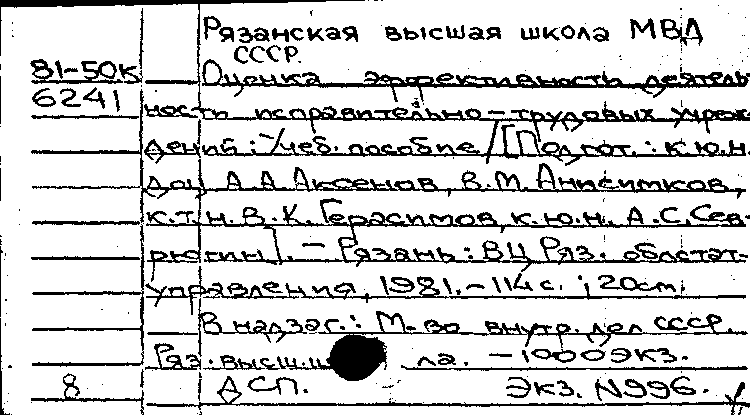 Рязанская высшая школа МВД
СССР.
81-50к
Оценка эффективность деятель
6241
ности исправительно-трудовых учреж-
дений: Учеб. пособие /[Подгот.: к.ю.н.
доц. А.А. Аксенов, В.М. Анисимков,
к.т.н. В.К. Герасимов, к.ю.н. А.С. Сев-
рюгин]. — Рязань: ВЦ Ряз. облстат-
управления, 1981. – 114 с.; 20см.
В надзаг.: М-во внутр. дел СССР.
Ряз. высш. ш ла. – 1000экз.
8
ДСП.
Экз. N996.